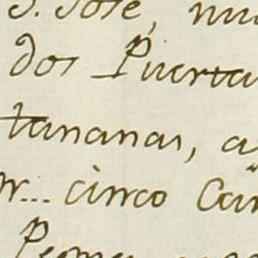 S. Jose,
dos Puerta
tananas, a
r... cinco Can